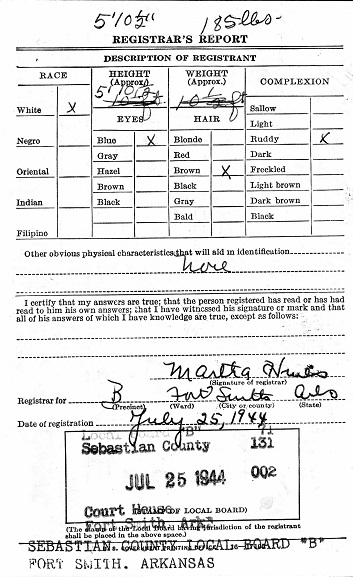 5'10½" 185 lbs-
REGISTRAR'S REPORT
DESCRIPTION OF REGISTRANT
RACE HEIGHT (Approx.) WEIGHT (Approx.) COMPLEXION
5'
White X EYES HAIR Sallow
Light
Negro Blue X Blonde Ruddy X
Gray Red Dark
Oriental Hazel Brown X Freckled
Brown Black Light brown
Indian Black Gray Dark brown
Bald Black
Filipino
Other obvious physical characteristics that will aid in identification
None
I certify that my answers are true; that the person registered has read or has had
read to him his own answers; that I have witnessed his signature or mark and that
all of his answers of which I have knowledge are true, except as follows:
Martha
(Signature of registrar)
Registrar for B Fort Smith Ark
(Precinct) (Ward) (City or county) (State)
Date of registration July 25, 1944
Local Board "B" 71
Sebastian County 131
JUL 25 1944 002
Court House
OF LOCAL BOARD)
Fort Smith, Ark
(The stamp of the Local Board having jurisdiction of the registrant
shall be placed in the above space.)
SEBASTIAN COUNTY LOCAL BOARD "B"
U. S. GOVERNMENT PRINTING OFFICE
FORT SMITH, ARKANSAS